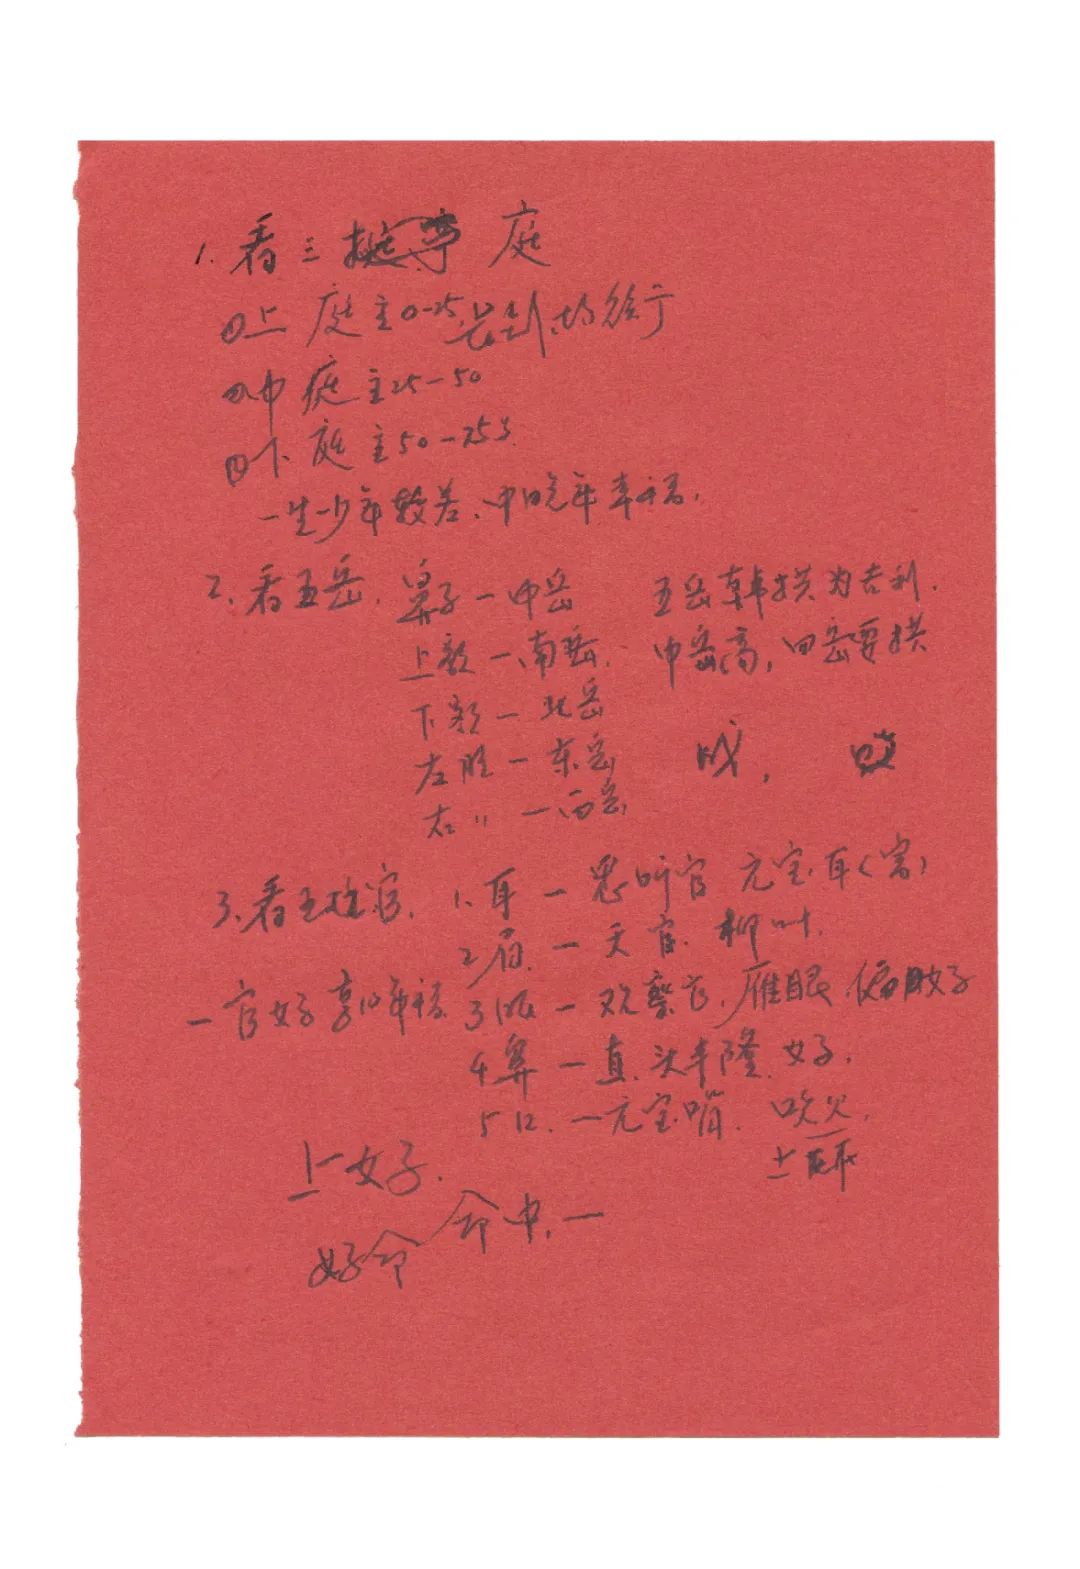 1. 看三庭
①上庭主0-25
②中庭主25-50
③下庭主50-75岁
一生少年较差、中晚年幸福.
2. 看五岳. 鼻子一中岳 五岳朝拱为吉利.
上额一南岳. 中岳高, 四岳要拱
下颏一北岳
左脸一东岳 成,
右〃一西岳
3. 看五官. 1. 耳一听官 元宝耳
2 眉一天官. 柳叶.
一官好享10年福 3 眼一观察官, 雁眼
4 鼻一直. 头丰隆. 好.
5 口. 一元宝嘴. 吹火.
上好.
好命 命中. 一